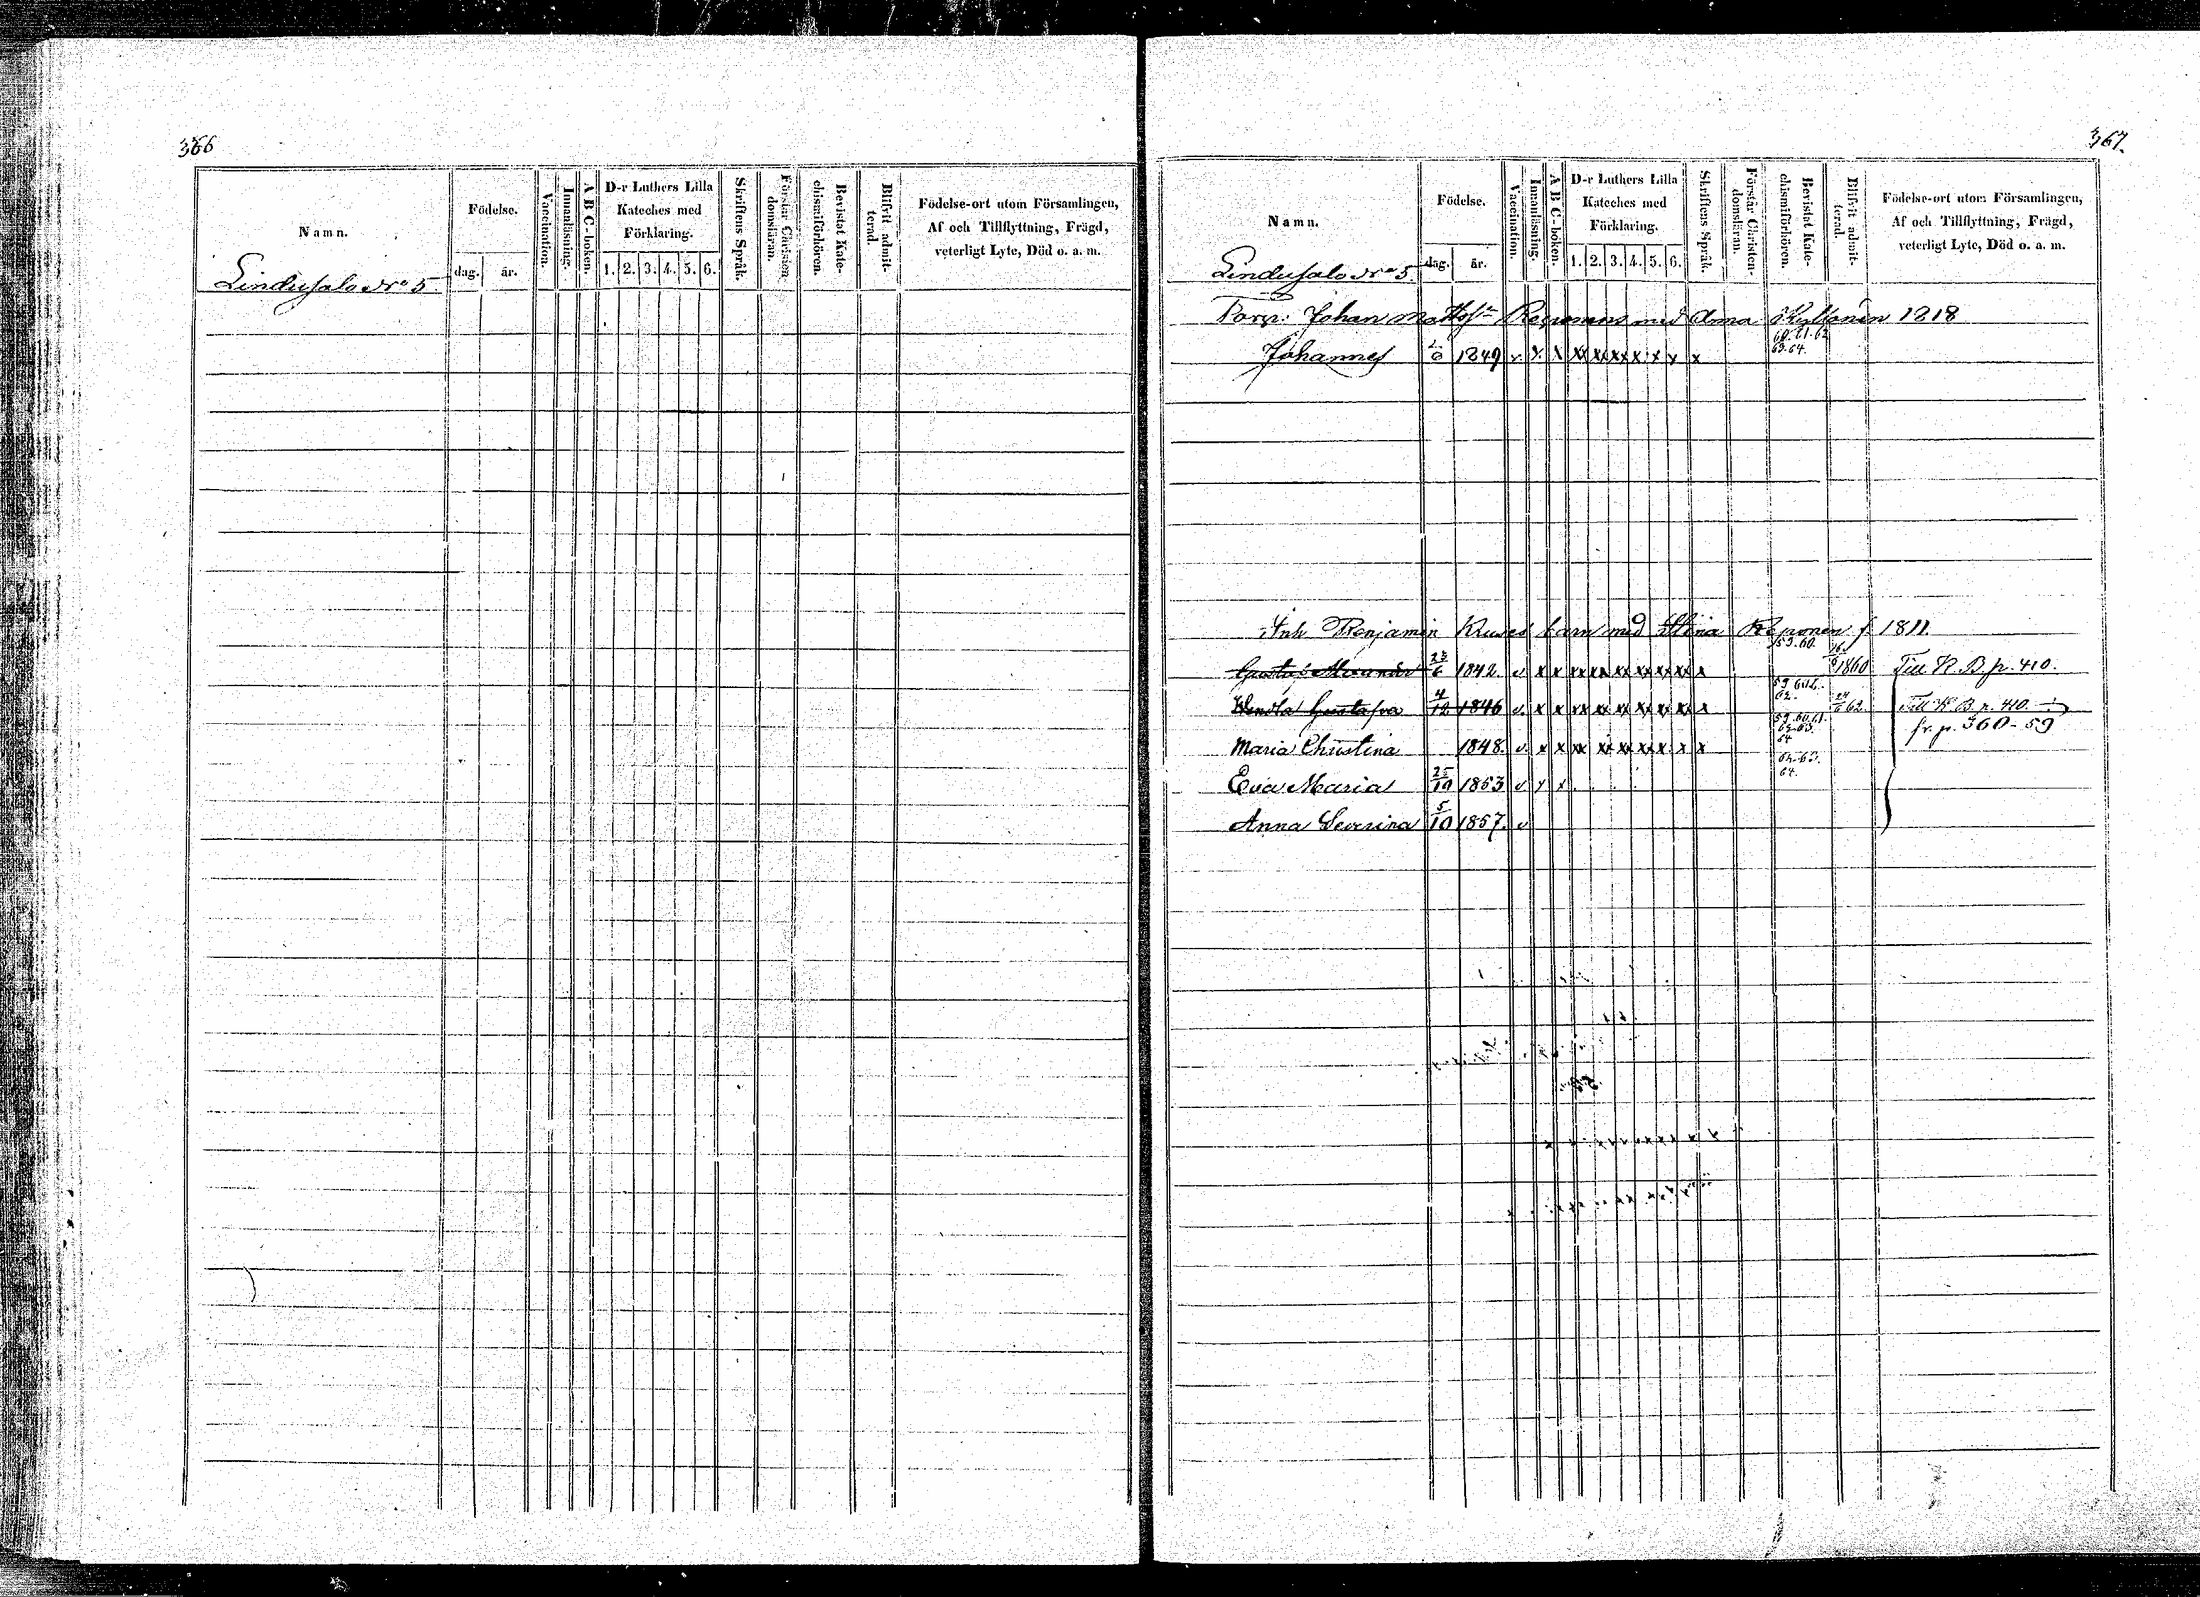 366
Namn.
Födelse.
dag. år.
Vaccination.
Innanläsning.
A B C-boken.
D-r Luthers Lilla
Kateches med
Förklaring.
1. 2. 3. 4. 5. 6.
Skriftens Språk.
Förstår Christen-
domsläran.
Bevistat Kate-
chismiförhören.
Blifvit admit-
terad.
Födelse-ort utom Församlingen,
Af och Tillflyttning, Frägd,
veterligt Lyte, Död o. a. m.
Lindusalo No 5
367.
Namn.
Födelse.
dag. år.
Vaccination.
Innanläsning.
A B C-boken.
D-r Luthers Lilla
Kateches med
Förklaring.
1. 2. 3. 4. 5. 6.
Skriftens Språk.
Förstår Christen-
domsläran.
Bevistat Kate-
chismiförhören.
Blifvit admit-
terad.
Födelse-ort utom Församlingen,
Af och Tillflyttning, Frägd,
veterligt Lyte, Död o. a. m.
Lindusalo No 5.
Torp: Johan Reponens med Anna 1818
60.61.62
63.64.
Johannes 1849 v x x xx xx xx x x x x
Inh Benjamin Kruses barn med Stina Reponen f 1811.
59.60.
Gustaf Alexander 23/6 1842. v x x xx xx xx xx xx xx x 1860 Till R. B. p. 410.
Wendla Gustafva 4/12 1846 v. x x xx xx xx xx xx xx x 24/6 62. Till R B p. 410.
fr. p. 360-59
59.60.61.
62.63.
64
Maria Christina 1848. v. x x xx xx xx xx x. x x
62.63.
64.
Eva Maria 25/10 1853 v x x
Anna Severina 5/10 1857. v